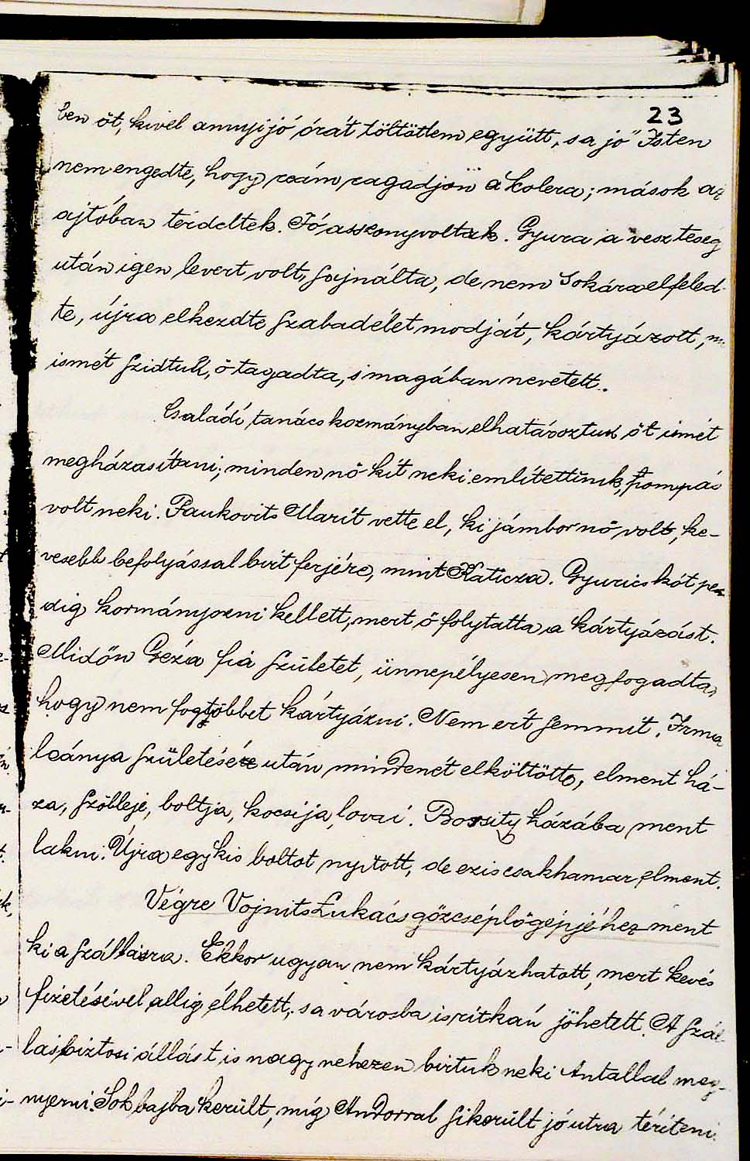 23
ben őt, kivel annyi jó órát töltöttem együtt, s a jó Isten
nem engedte, hogy reám ragadjon a kolera; mások az
ajtóban térdeltek. Jó asszony voltak. Gyura a veszteség
után igen levert volt, sajnálta, de nem sokára elfeled-
te, újra elkezdte szabad élet modját, kártyázott,
ismét szidtuk, ő tagadta, s magában nevetett.
Családi tanácskozmányban elhatároztuk őt ismét
megházasítani; minden nő kit neki említettünk, pompás
volt neki. Paukovits Marit vette el, ki jámbor nő volt, ke-
vesebb befolyással birt férjére, mint Katicza. Gyuricskót pe-
dig kormányozni kellett, mert ő folytatta a kártyázást.
Midőn Géza fiá születet, ünnepélyesen megfogadta,
hogy nem fog többet kártyázni. Nem ért semmit. Irma
leánya születésére után mindenét elköltötte, elment há-
za, szőlleje, boltja, kocsija, lovai. Bossity házába ment
lakni. Újra egy kis boltot nyitott, de ez is csakhamar elment.
Végre Vojnits Lukács gőzcséplőgépjéhez ment
ki a szállásra. Ekkor ugyan nem kártyázhatott, mert kevés
fizetésével allig élhetett, s a városba is ritkán jöhetett. A szál-
lásbiztosi állást is nagy nehezen birtuk neki Antallal meg-
nyerni. Sok bajba került, míg Andorral sikerült jó utra téríteni.